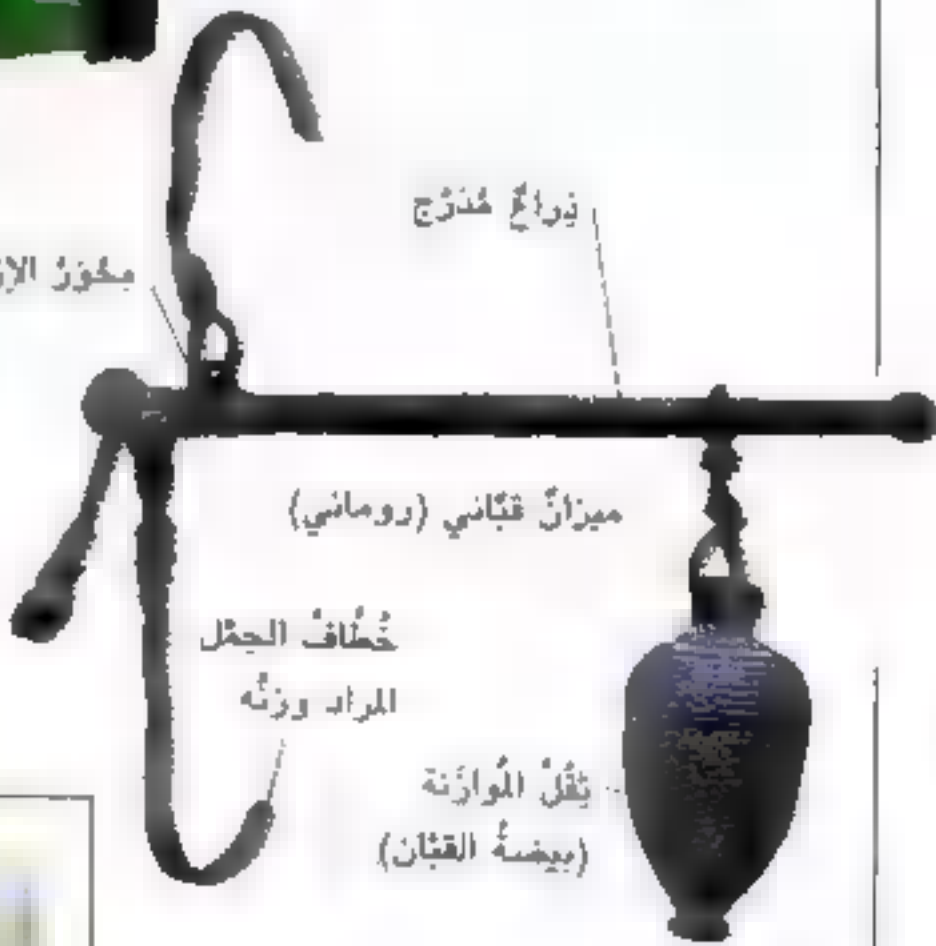 ذِراعٌ مُدَرَّج
مِحْوَرُ
ميزانٌ قبّاني (روماني)
خُطّافُ الحِمْل
المراد وزنُه
ثِقْلُ المُوازَنة
(بيضةُ القبّان)